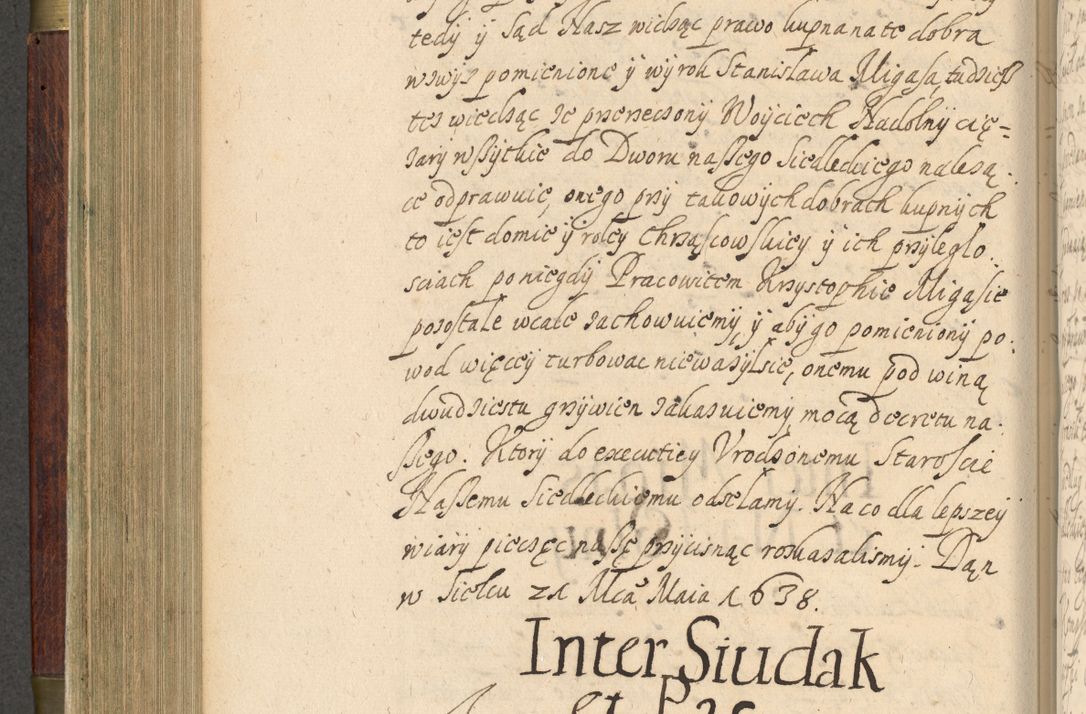 tedy ÿ Sąd Nasz widząc prawo kupna na te dobra
wzwyż pomienione ÿ wÿrok Stanisława Migasa, tudziesz
tez wiedząc ze przerzeczonÿ Woÿciech Nadolnÿ cię=
zarÿ wszÿtkie do Dworu naszego Siedleckiego nalezą.
ce odprawuie, onego przÿ takowÿch dobrach kupnÿch
to iest domie ÿ rolęy Chrząscowskięy ÿ ich przÿległo.
sciach po niegdÿ Pracowitem Krzystophie Migasie
pozostałe wcale zachowuiemÿ, ÿ abÿ go pomienionÿ po.
wod więcęy turbowac nie wazÿł się, onemu pod winą
dwudziestu grzÿwien zakazuiemÿ, mocą decretu na.
szego. Ktorÿ do executięy Vrodzonemu Staroscie
Naszemu Siedleckiemu odsełamy. Na co dla lepszey
wiarÿ pieczęc naszę przÿcisnąc roskazalismÿ. Dąn
w Sielcu 21 Mcą Maia 1638.
Inter Siudak
et